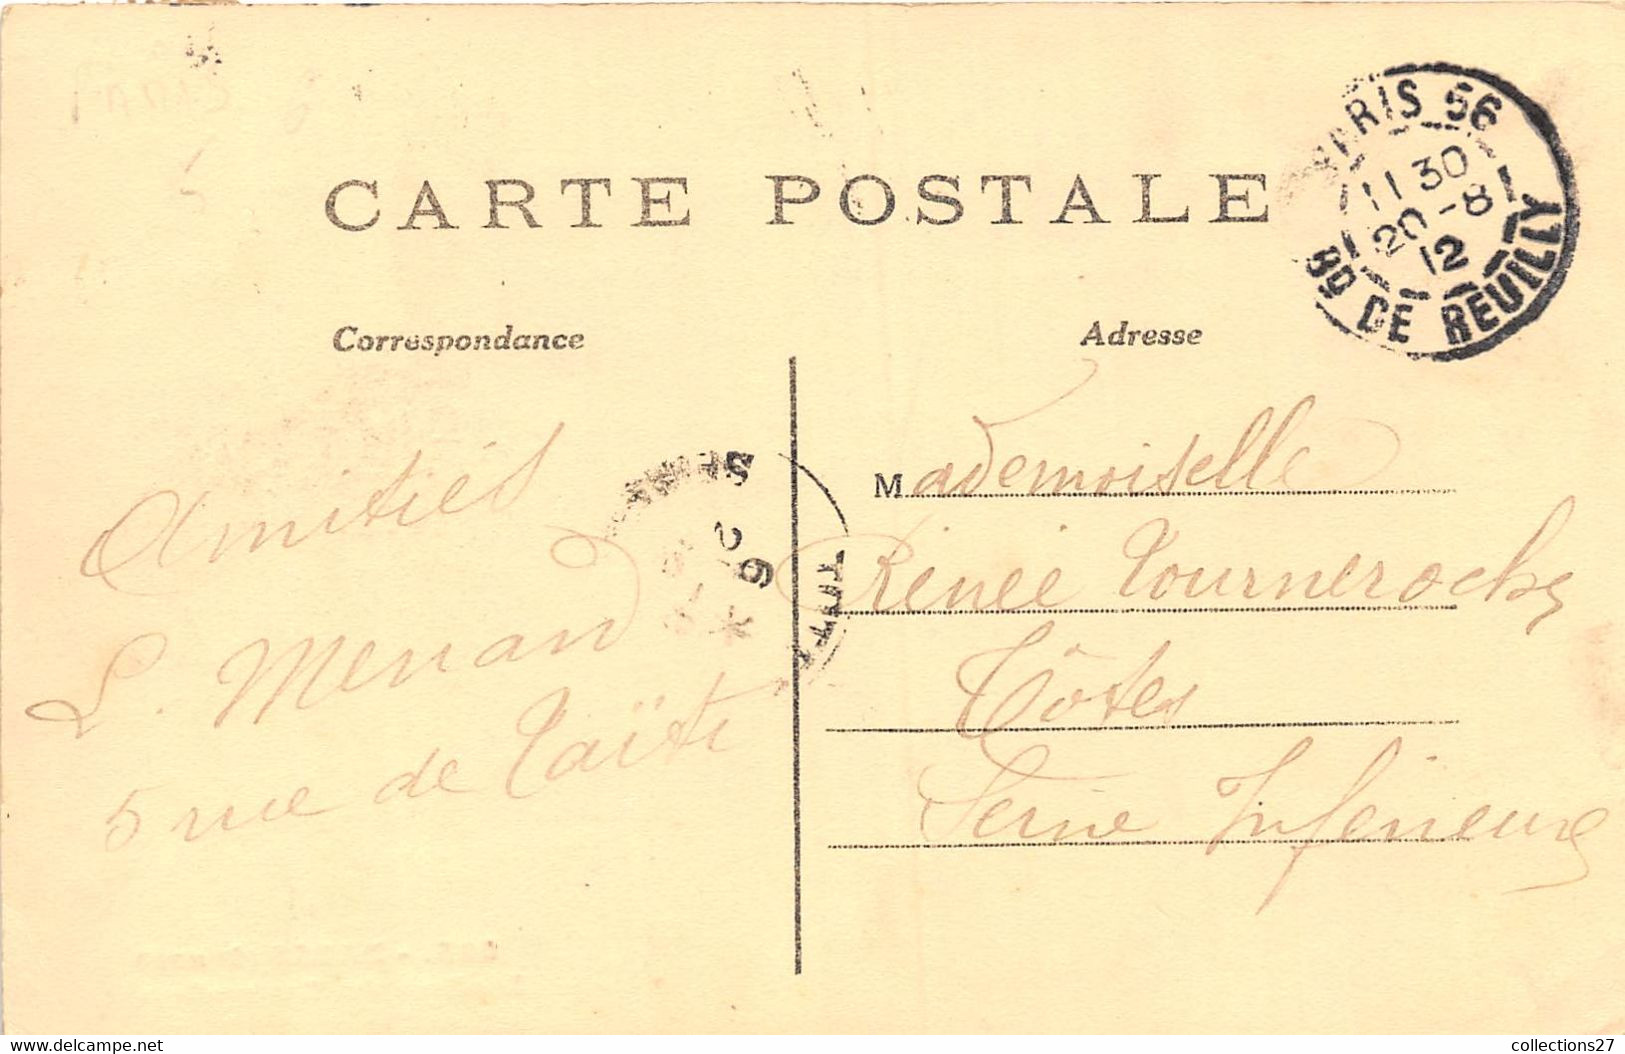 CARTE POSTALE
PARIS 56
11 30
20 - 8
12
BD DE REUILLY
Correspondance
Adresse
Amitiés
L. Menand
5 rue de Taïti
Mademoiselle
Renée Tourneroche
Tôtes
Seine Inférieure
collections27